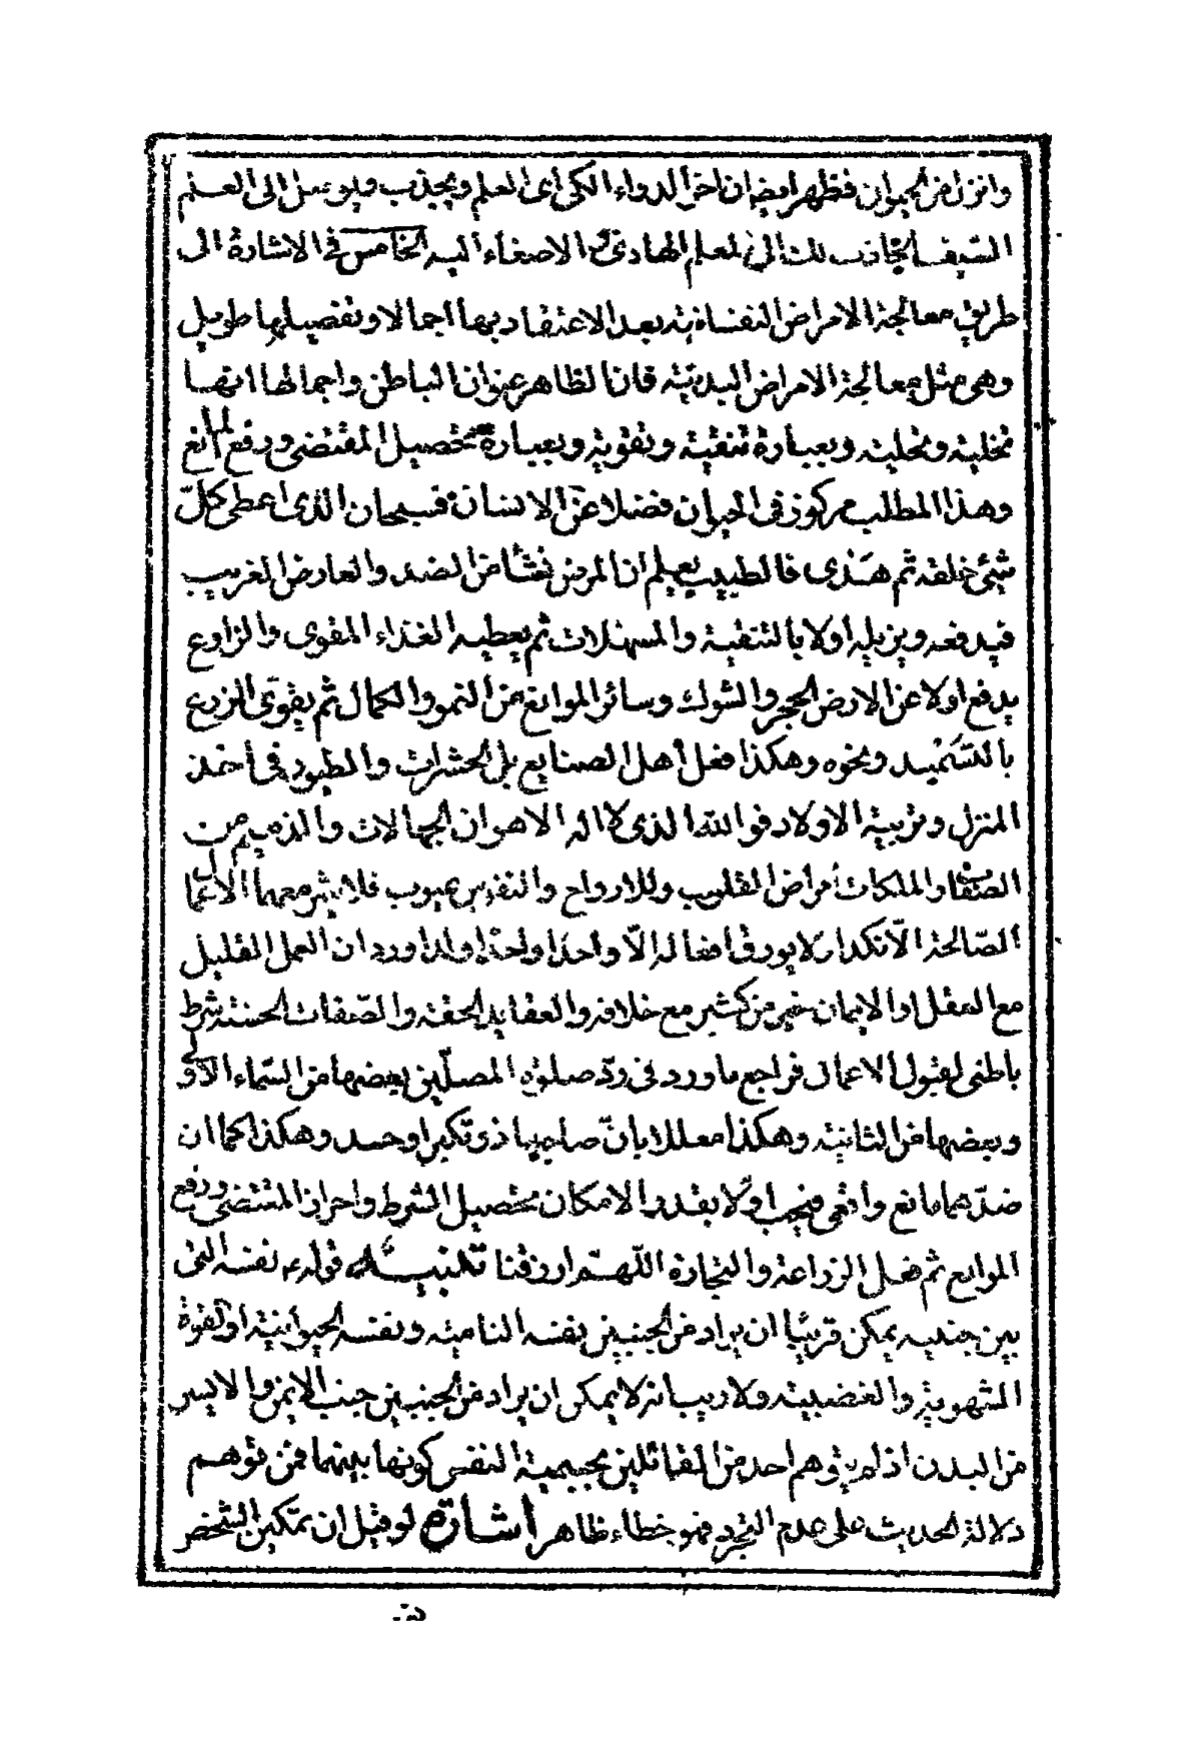 وانزل من الحيوان فظهر ايضا ان اخر الدواء الكى اى العلم ويجذب ويوصل الى العلم
السيف الجاذب لك الى المعلم الهادى الاصغاء اليه الخامس فى الاشارة الى
طريق معالجة الامراض النفسانية بعد الاعتقاد بها اجمالا وتفصيلها طويل
وهى مثل معالجة الامراض البدنية فان الظاهر عنوان الباطن واجمالها انها
تخلية وتحلية وبعبارة تنقية وتقوية وبعبارة تحصيل المقتضى ورفع المانع
وهذا المطلب مركوز فى الحيوان فضلا عن الانسان فسبحان الذى اعطى كلّ
شيئ خلقه ثم هدى فالطبيب يعلم ان المرض نشأ من الضد والعارض الغريب
فيدفعه ويزيله اولا بالتنقية والمسهلات ثم يعطيه الغذاء المقوى والزارع
يدفع اولا عن الارض الحجر والشوك وسائر الموانع من النمو والكمال ثم يقوّى الزرع
بالتسميد ونحوه وهكذا فعل أهل الصنايع بل الحشرات والطيور فى أخذ
المنزل وتربية الاولاد فوالله الذى لا اله الا هو ان الجهالات والذميم من
الصفات والملكات أمراض القلوب وللارواح والنفوس عيوب فلا يثمر معها الاعمال
الصّالحة الّا نكدا ولا يورق اضعاله الّا واحدا واحدا ولذا ورد ان العمل القليل
مع العقل او الايمان خير من كثير مع خلافه والعقايد الحقة والصّفات الحسنة شرط
باطنى لقبول الاعمال فراجع ما ورد فى ردّ صلوة المصلّين بعضها من السّماء الاولى
وبعضها من الثانية وهكذا معللا بانّ صاحبها ذو تكبر او حسد وهكذا كما ان
ضدّهما مانع واقعى فيجب اولا بقدر الامكان تحصيل الشرط واحراز المقتضى ورفع
الموانع ثم فعل الزراعة والتجارة اللّهم ارزقنا تنبيه قوله ع نفسه التى
بين جنبيه يمكن قريبا ان يراد من الجنبين نفسه النامية ونفسه الحيوانية او القوة
الشهوية والغضبية ولا ريب انه لا يمكن ان يراد من الجنبين جنب الايمن والايسر
من البدن اذ لم يتوهم احد من القائلين بجسمية النفس كونها بينهما فمن توهم
دلالة الحديث على عدم التجرد فهو خطاء ظاهر اشارة لو قيل ان تمكين الشخص